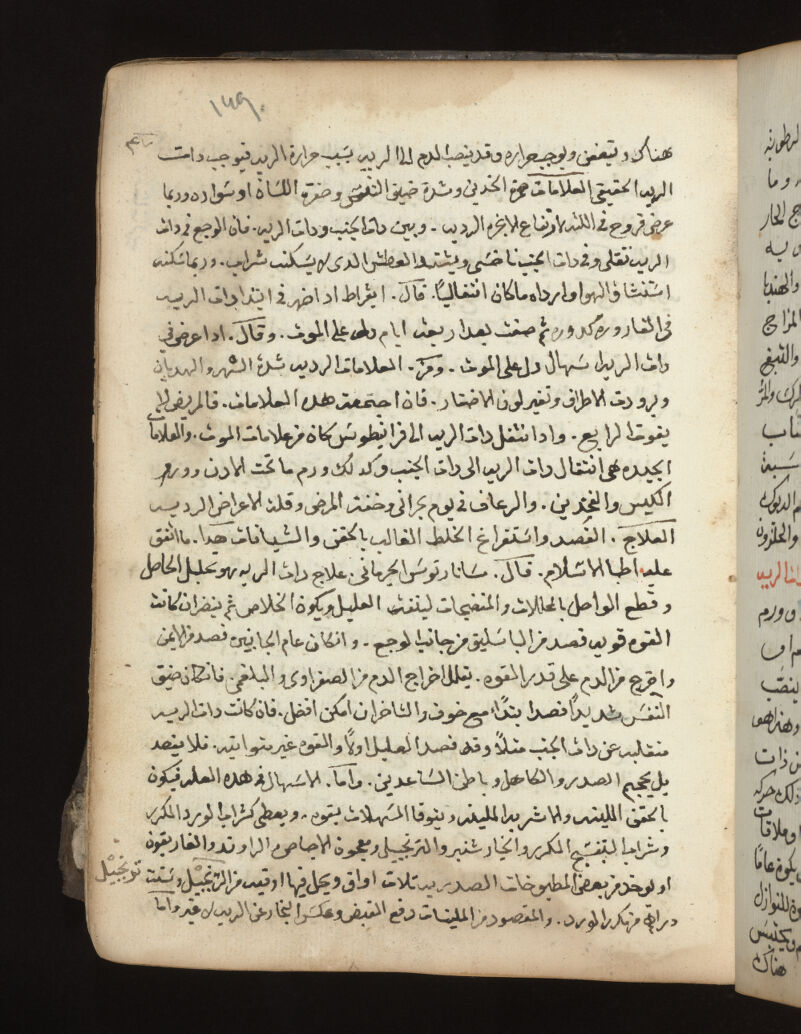 ١٤٩
هناك وتتعفن ويوجب حراره وقد ينصب الدم الى الريه بسبب حرارة الريه فيوجب دات
الريه الحقيقى العلامات حمرة الخدين وشدة ضيق التنفس وصفرة اللسان او سواده وربما
عرض قروح فى اللثه لارتفاع الابخره الرديه . وبين دات الجنب ودات الريه . فان الوجع فى دات
الريه ثقلى وفى دات الجنب ناخسى ويشتد العطش الدى لا يسكنه شراب . وربما سكنه
استنشاق الهوا وارداه ماكان انتقاليًا . قال . ابقراط ادا ضهر فى ابتدا دات الريه
فى القاروره كدوره ثم صفت بعد اربعة ايام دل على الموت . وقال . ادا عرض فى
دات الريه اسهال دل على الموت . ومن . العلامات الرديه شدة السهر والهديان
وبرودة الاطراف وتغير لون الاضفار . فان اجتمعت هده العلامات . فالمريض لا
يفوت الرابع . وادا انتقل دات الريه الى فرانيطوس كان من علامات الموت . والعلامات
الجيده هى انتقال دات الريه الى دات الجنب وكدلك ورم ما تحت الادن وورم
الكليتين والفخدين . والرعاف فى يوم بحرانى وخفت المرض وقلت الاعراض الرديه
العلاج . الفصد واستفراغ الخلط الغالب بالحقن والشيافات هكدا . ما اتفق
عليه اطبا الاسلام . قال . سنارتوس الجرمانى : علاج دات الريه هو تحليل الحاصل
وقطع الواصل بالمحللات والمنضجات لينفث العليل ويكون الخلاص ثم ينضر ان كانت
القوه قويه فصد من الباسليق من جانب الوجع . وان كان عام الجانبين فصد من الايمن
واخرج من الدم على قدر القوه . يقلل اخراج الدم من الصفراوى والبلغمى . فان كان ضيق
النفس شديدًا فصد ابتدًا مع خوف والتاخر ان امكن افضل . فان كانت دات الريه
منقلبه عن دات الجنب مثلًا وقد فصد العليل اولًا والقوه غير متواتيه . فلا يفصد
بل يحجم الصدر والكاهل وباطن الساعدين . واما . الاسهال فى هده العله فيكون
بالحقن الملينه والاشربه الملينه ويتوقا المسهلات بقوه . ويعطى كشراب الورد المكرر
وشراب البنفسج المكرر والخيار شنبر والترنجبيل ومعجون الاجاص مع الراوند والغاريقون
او يوخد من بعض المطبوخات الصدريه تلات اواق ويحل فيها اوقيه من الترنجبيل وستت
ترنجبيل
دراهم من مكرر الورد . والمقصود من الملينات دفع القبض وعكس البخار عن الريه لا غير واما